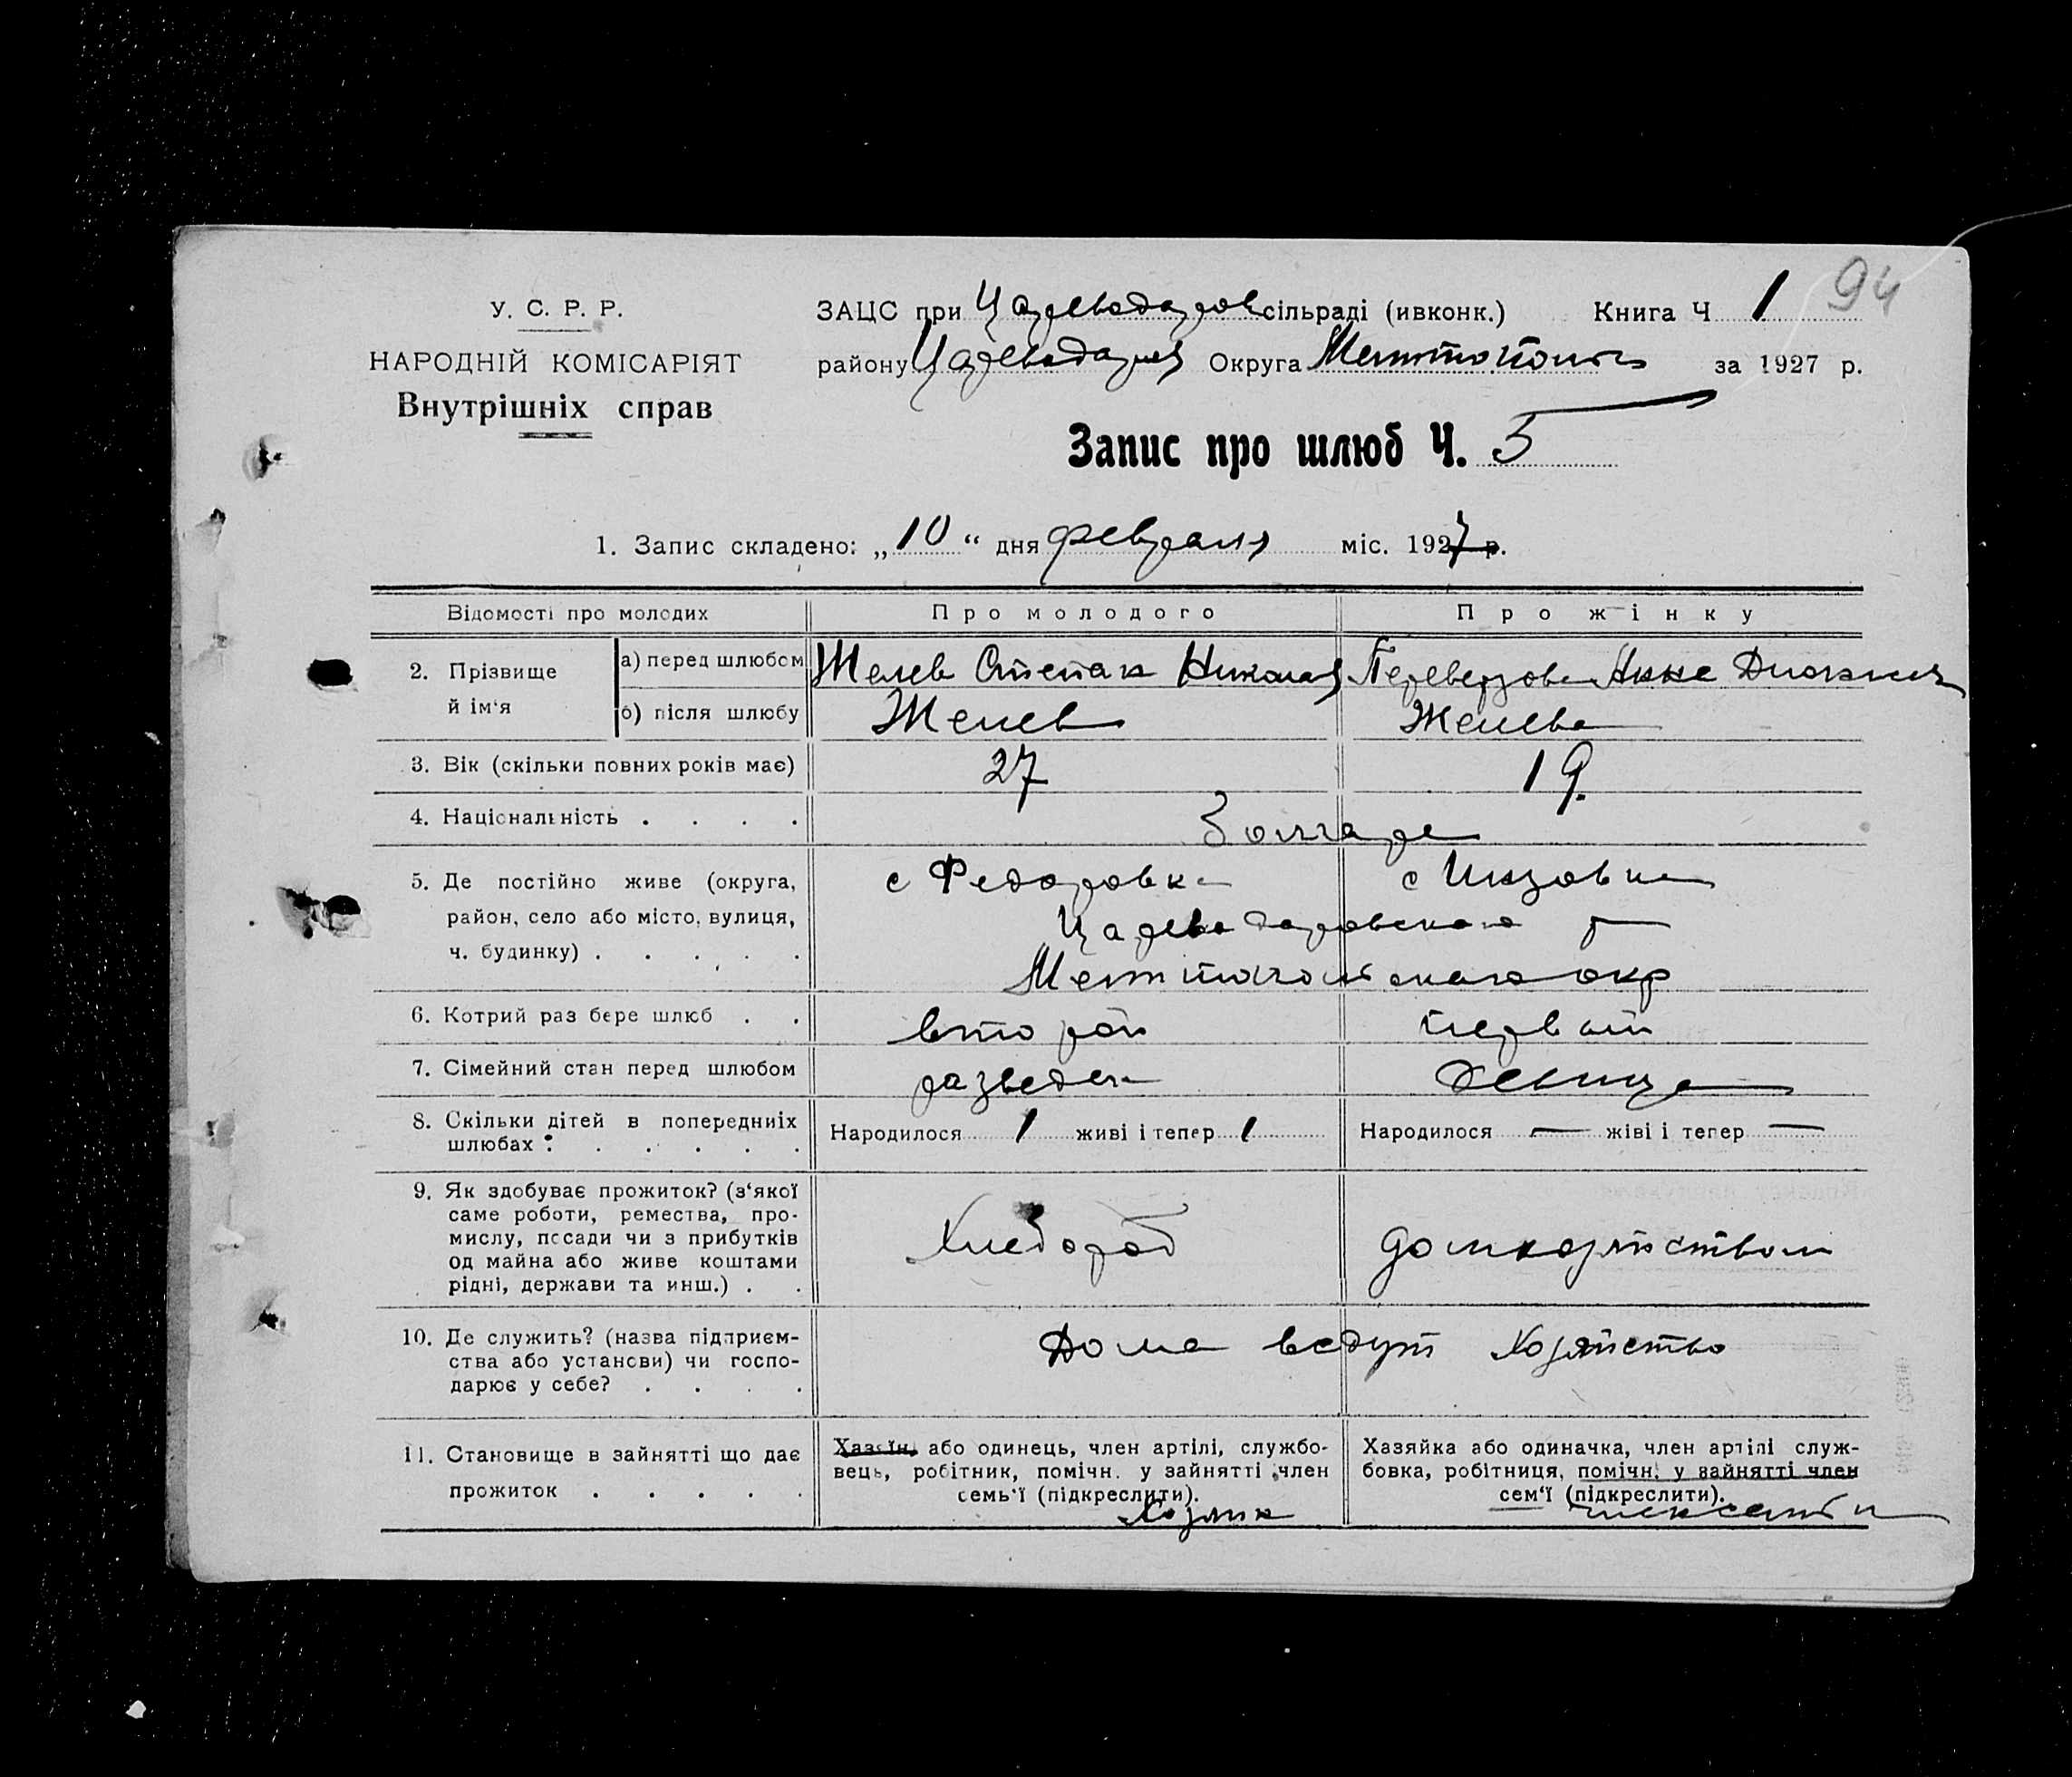 94
У. С. Р. Р.
НАРОДНІЙ КОМІСАРІЯТ
Внутрішніх справ
ЗАЦС при Цареводаров сільраді (ивконк.) Книга Ч 1
району Цареводар Округа Мелитополь за 1927 р.
Запис про шлюб Ч. 5
1. Запис складено: „10“ дня февраля міс. 1927 р.
Відомості про молодих Про молодого Про жінку
2. Прізвище й ім'я
а) перед шлюбом Желев Степан Никола Переверзова Анна
б) після шлюбу Желев Желева
3. Вік (скільки повних років має) 27 19
4. Національність . . . . Болгаре
5. Де постійно живе (округа, с Федоровка с
район, село або місто, вулиця, Царево даровского р
ч. будинку) . . . . . Мелитопольского окр
6. Котрий раз бере шлюб . . второй первый
7. Сімейний стан перед шлюбом разведен девица
8. Скільки дітей в попередниіх
шлюбах : . . . . . Народилося 1 живі і тепер 1 Народилося — жіві і тепер —
9. Як здобуває прожиток? (з'якої
саме роботи, ремества, про-
мислу, посади чи з прибутків
од майна або живе коштами
рідні, держави та инш.) . . Хлебороб домхозяйством
10. Де служить? (назва підприєм-
ства або установи) чи госпо-
дарює у себе? . . . . Дома ведут хозяйство
11. Становище в зайнятті що дає
прожиток . . . . .
Хазяїн, або одинець, член артілі, службо-
вець, робітник, помічн. у зайнятті член
семь'ї (підкреслити).
Хозяин
Хазяйка або одиначка, член артілі служ-
бовка, робітниця, помічн. у зайнятті член
сем'ї (підкреслити).
член семьи